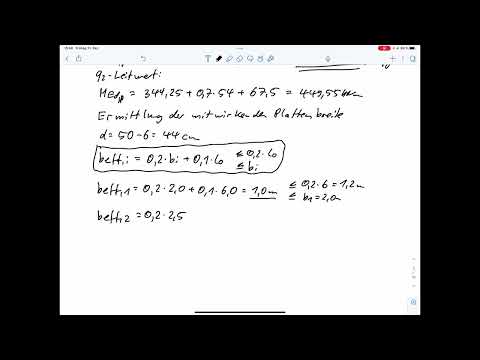 q2-Leitwert:
MEdφ = 344,25 + 0,7·54 + 67,5 = 449,55 kNm
Ermittlung der mitwirkenden Plattenbreite
d = 50-6 = 44 cm
beff,i = 0,2·bi + 0,1·lo ≤ 0,2·lo
≤ bi
beff,1 = 0,2·2,0 + 0,1·6,0 = 1,0m ≤ 0,2·6 = 1,2m
≤ b1 = 2,0
beff,2 = 0,2·2,5